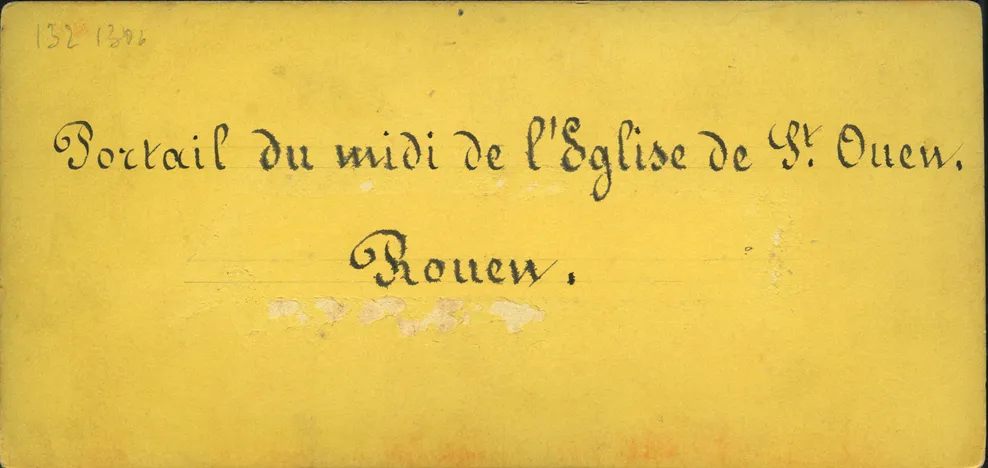 132
Portail du midi de l'Eglise de St. Ouen.
Rouen.